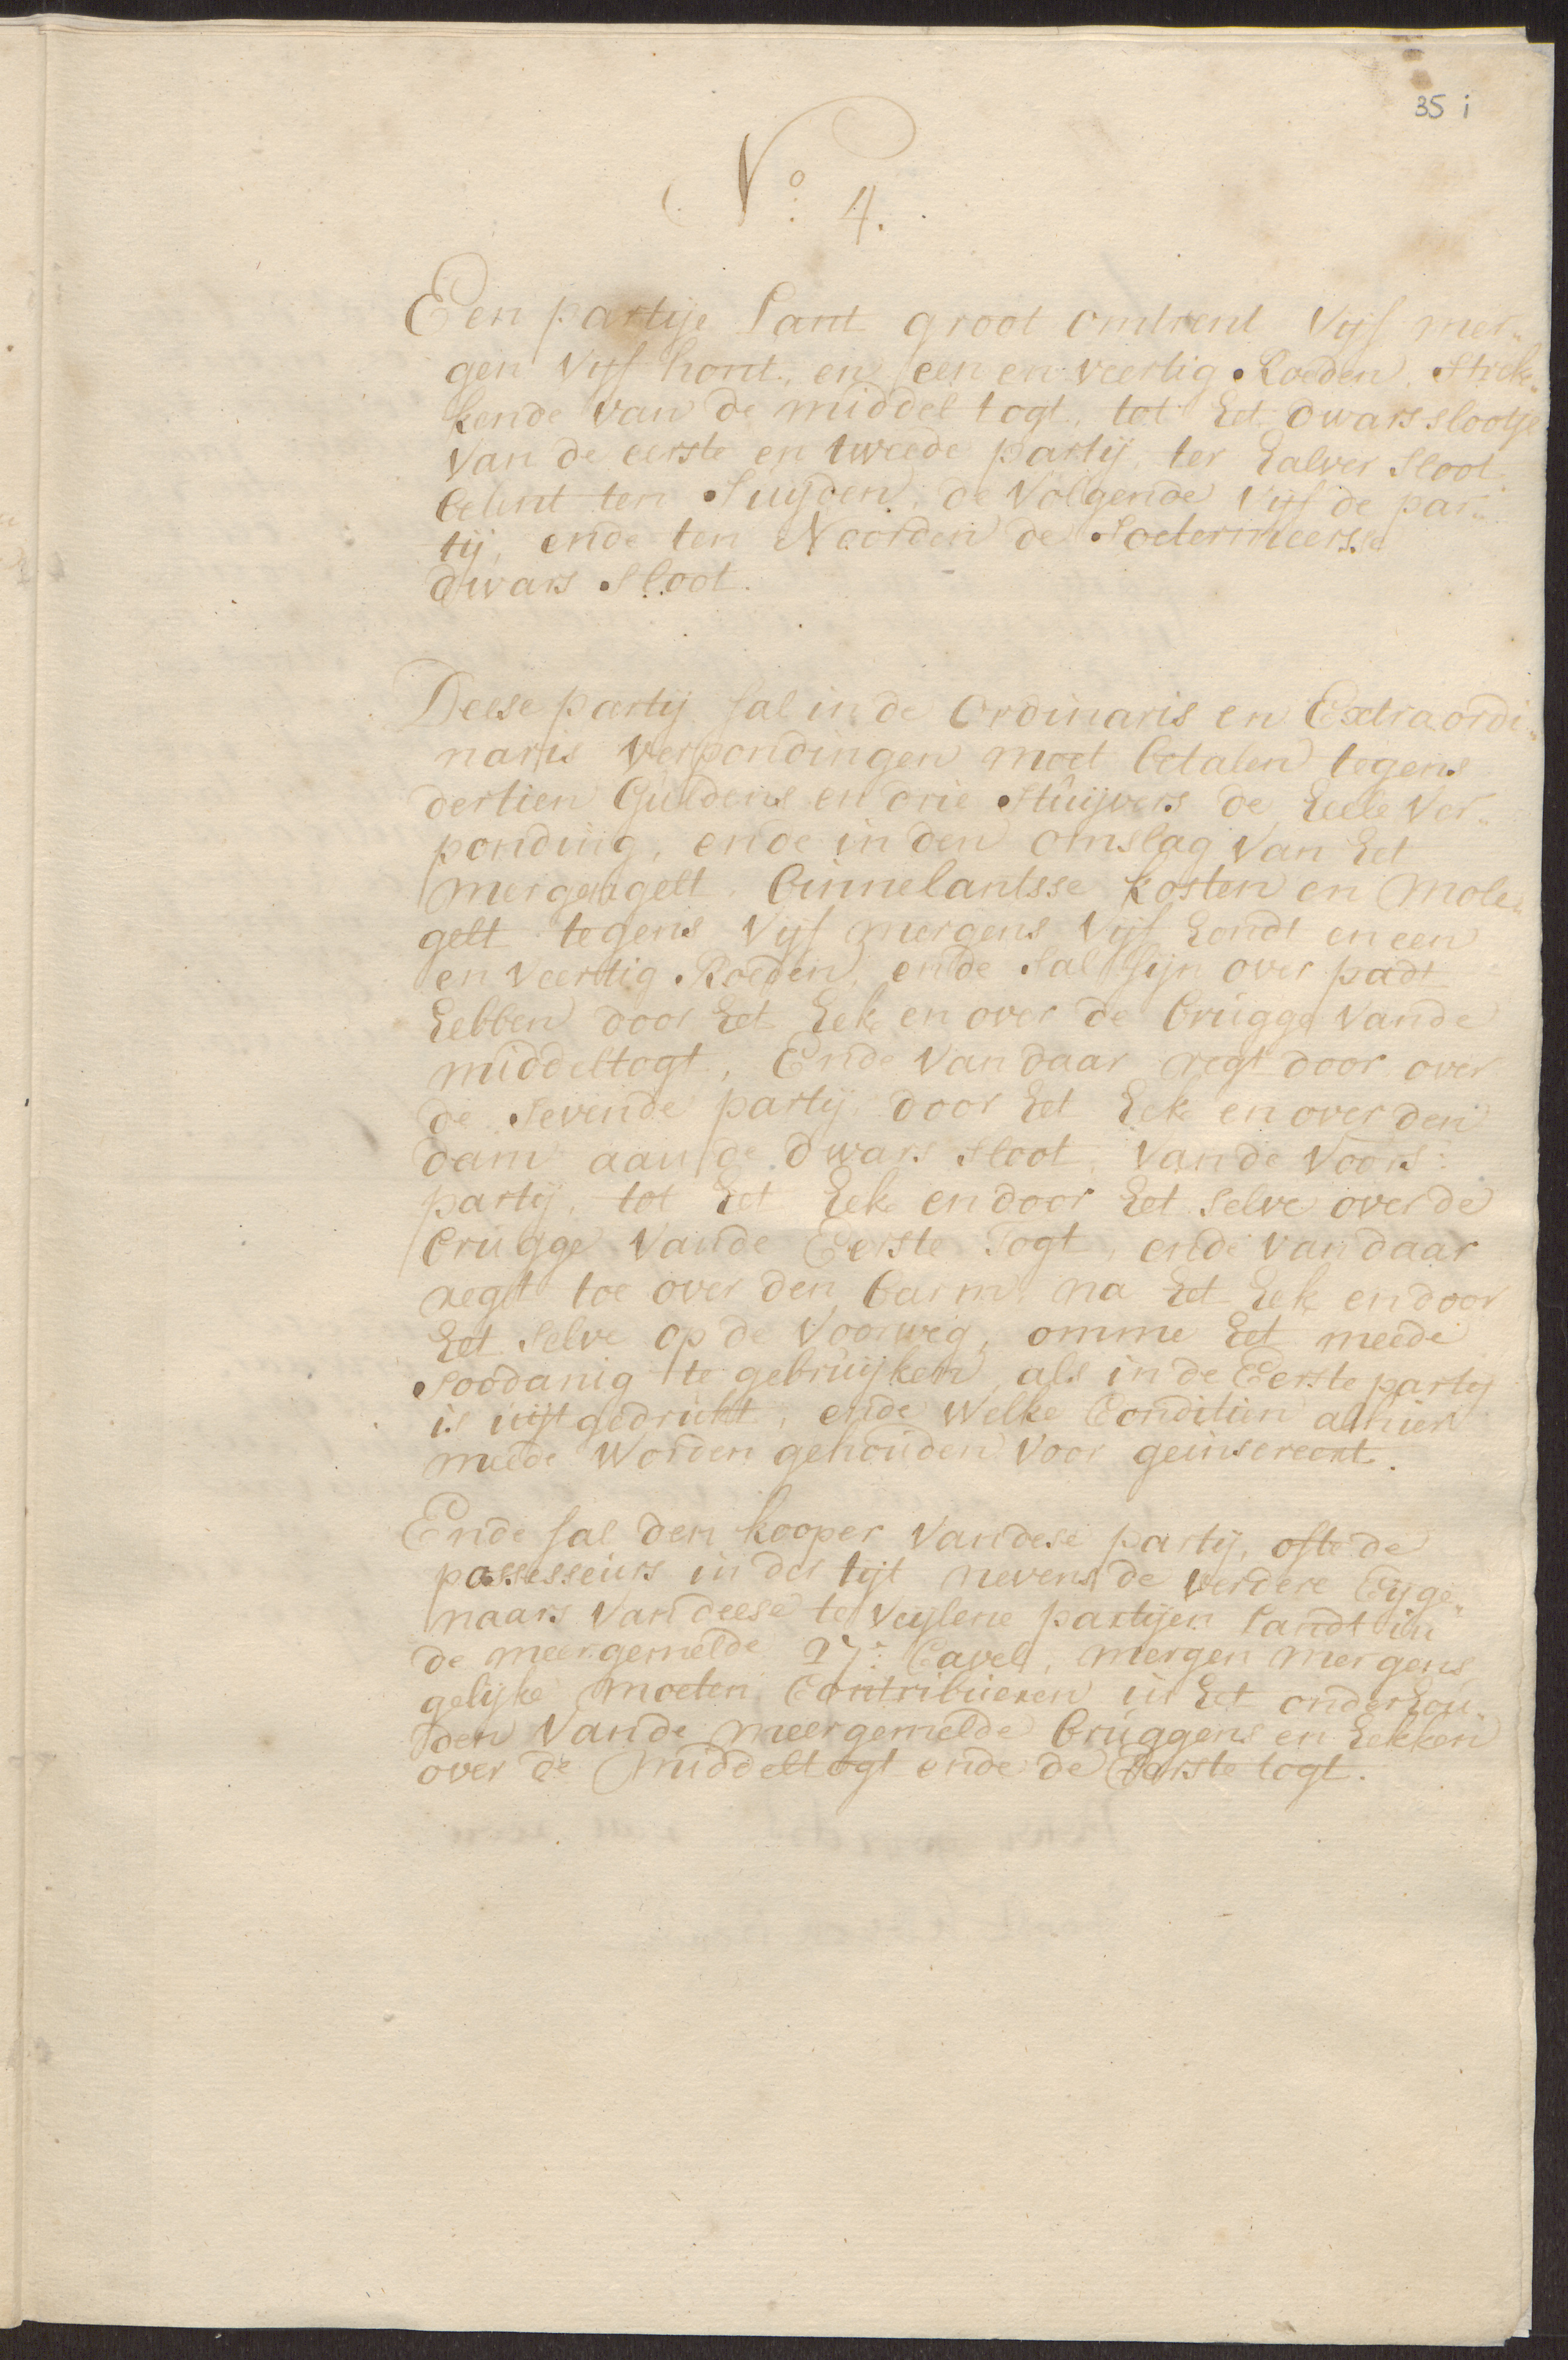 35 i
No: 4.
Een partije Lant groot omtrent Vijf mer„
gen Vijf hont, en een en veertig Roeden, Strek„
kende van de middel togt, tot het dwars slootje
van de eerste en tweede partij, ter halver sloot
belent ten Suijden, de Volgende Vijfde par„
tij, ende ten Noorden de Soetermeersse
dwars Sloot.
Deese partij sal in de Ordinaris en Extraordi„
naris verpondingen moet betalen tegens
dertien Guldens en drie Stuijvers de heele Ver„
ponding, ende in den omslag van het
mergengelt, binnelantsse kosten en Mole„
gelt tegens Vijf mergens Vijf hondt en een
en veertig Roeden, ende sal sijn over padt
hebben door het hek en over de brugge vande
middeltogt, Ende van daar regt door over
de Sevende partij door het hek en over den
dam aan de dwars sloot, vande voors:
partij, tot het hek en door het selve over de
brugge vande Eerste Togt, ende van daar
regt toe over den barm, na het hek en door
het selve op de Voorweg, omme het meede
soodanig te gebruijken, als in de Eerste partij
is uijtgedrukt, ende welke Conditien alhier
meede worden gehouden voor geinsereert.
Ende sal den kooper van dese partij, ofte de
possesseurs in der tijt nevens de verdere Eijge„
naars van deese te veijlene partijen landt in
de meergemelde 17e: Cavel, mergen mergens
gelijke moeten Contribueren in het onderhou„
den vande meergemelde bruggens en hekken
over de Middeltogt ende de Eerste togt.